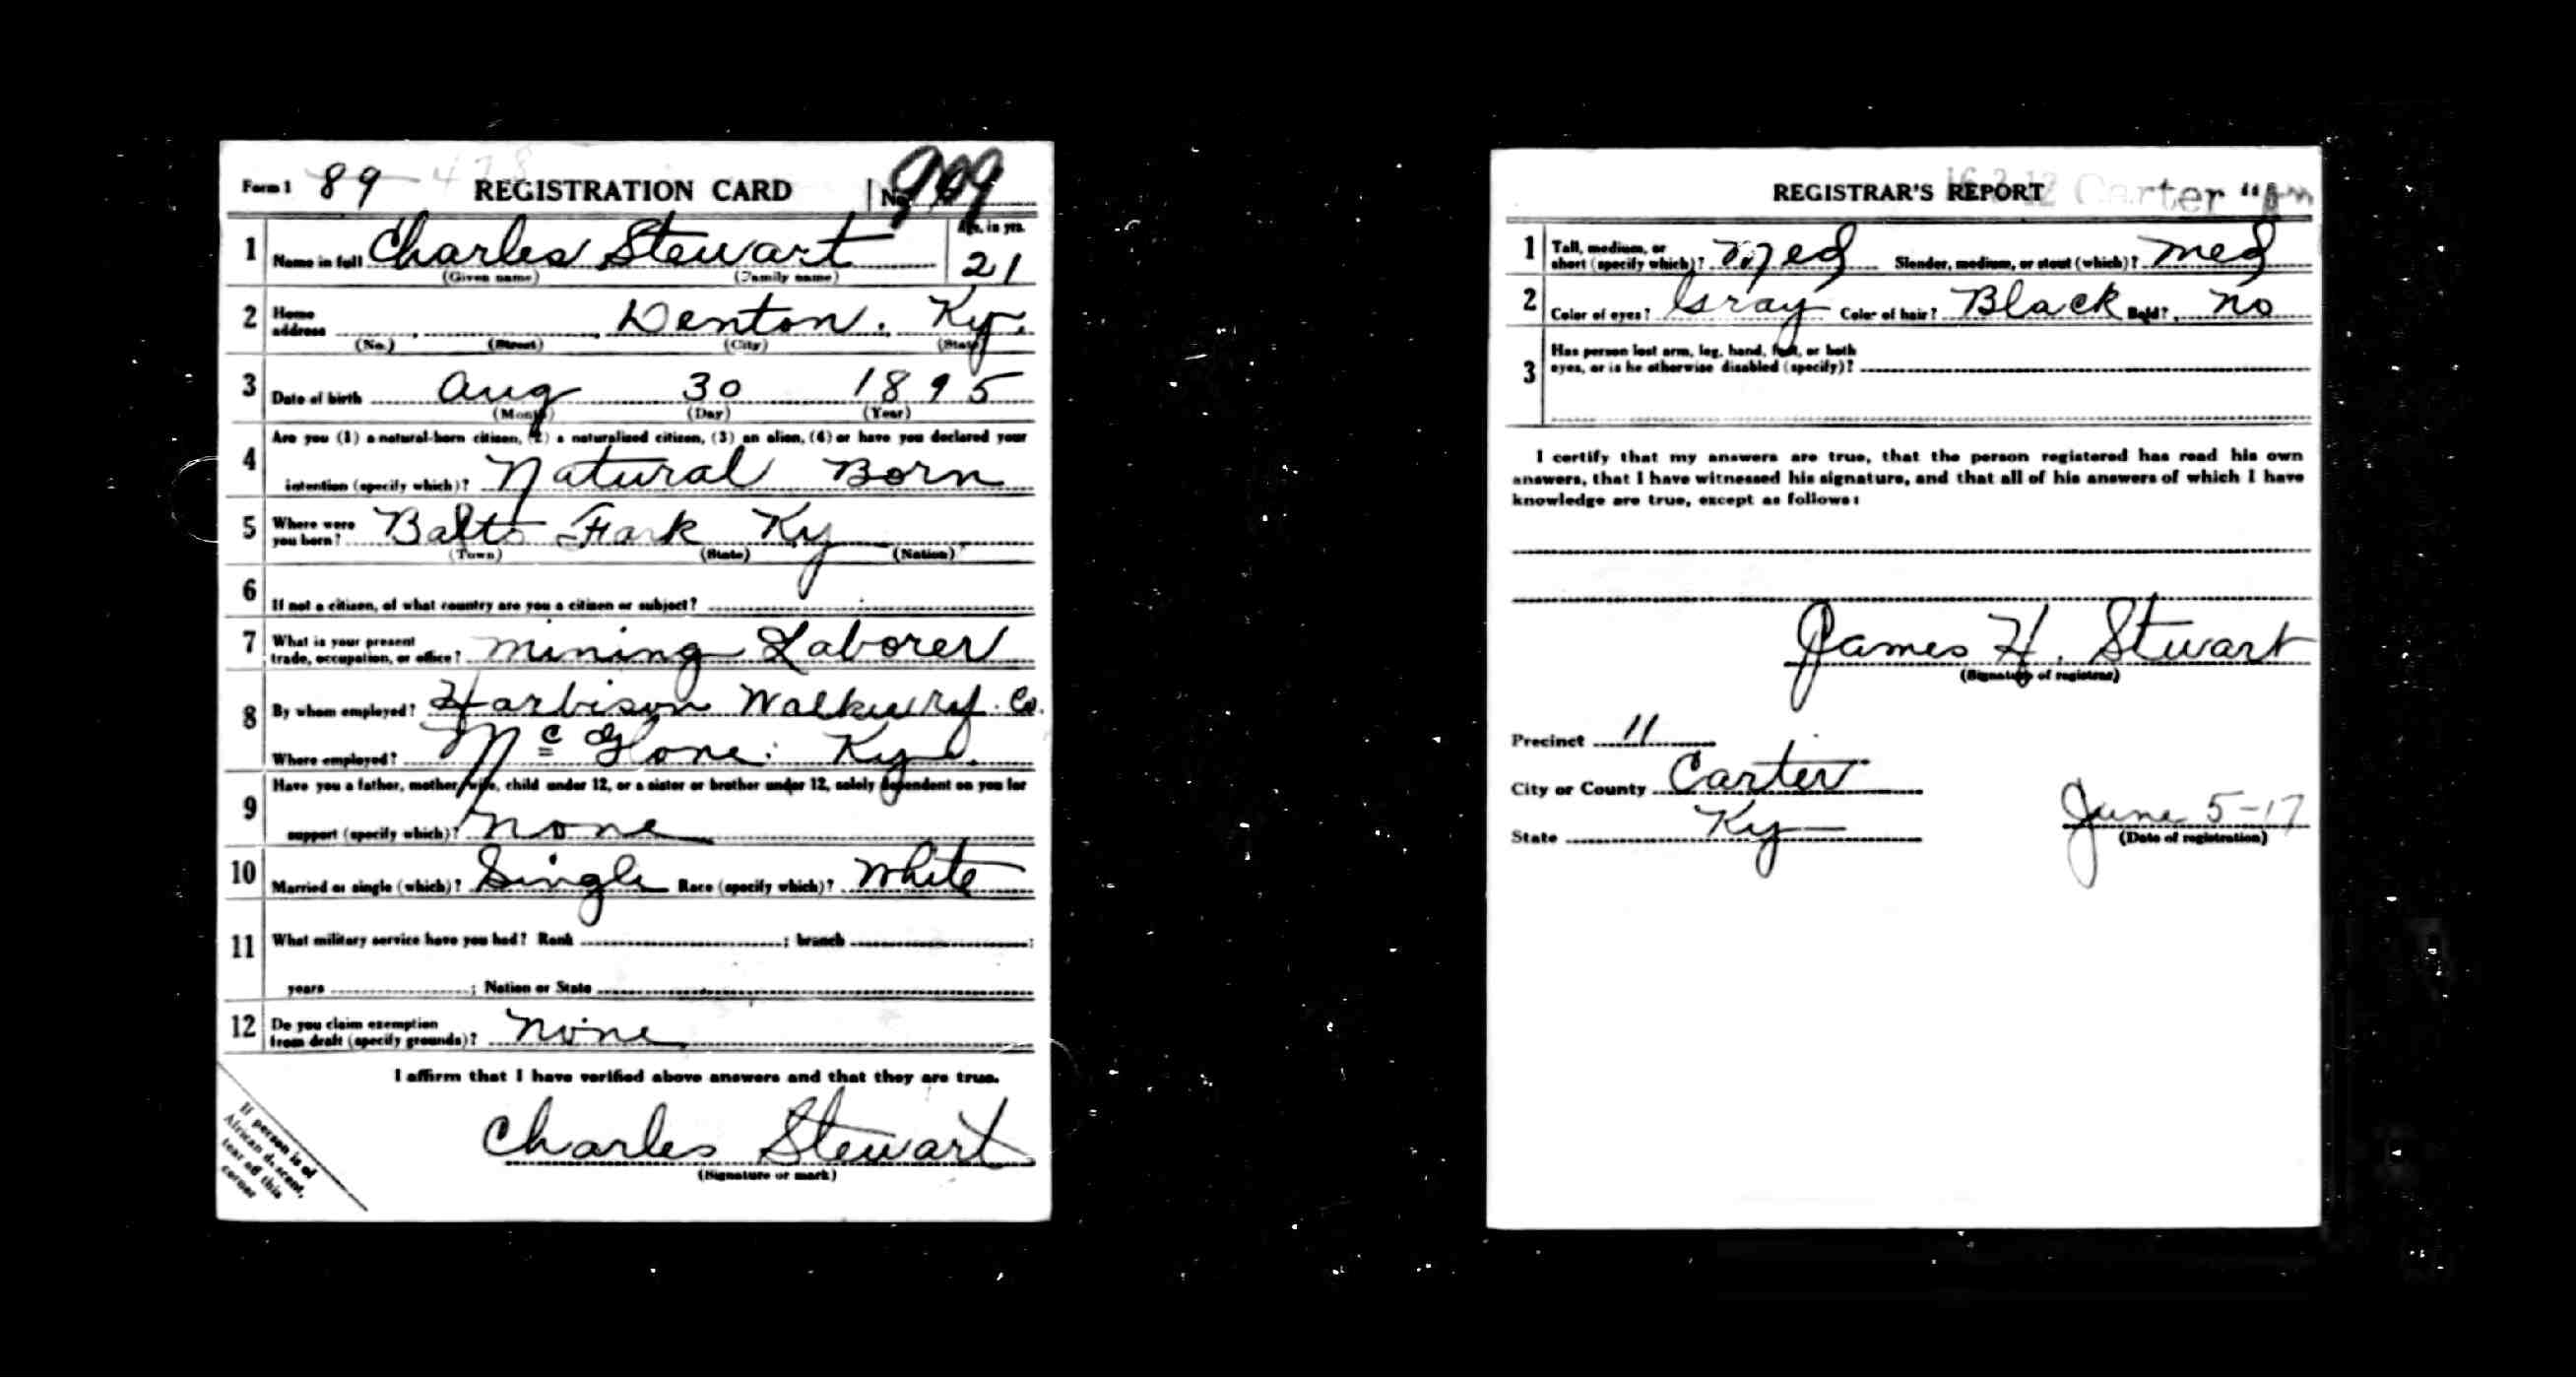 Form 1 89 REGISTRATION CARD No. 909
1 Name in full Charles Stewart Age, in yrs. 21
(Given name) (Family name)
2 Home address Denton. Ky.
(No.) (Street) (City) (State)
3 Date of birth Aug 30 1895
(Month) (Day) (Year)
4 Are you (1) a natural-born citizen, (2) a naturalized citizen, (3) an alien, (4) or have you declared your
intention (specify which)? Natural Born
5 Where were you born? Balts Fark Ky
(Town) (State) (Nation)
6 If not a citizen, of what country are you a citizen or subject?
7 What is your present trade, occupation, or office? Mining Laborer
8 By whom employed? Harbison Co.
Where employed? McGlone. Ky.
9 Have you a father, mother, wife, child under 12, or a sister or brother under 12, solely dependent on you for
support (specify which)? None
10 Married or single (which)? Single Race (specify which)? White
11 What military service have you had? Rank ; branch ;
years ; Nation or State
12 Do you claim exemption from draft (specify grounds)? None
I affirm that I have verified above answers and that they are true.
Charles Stewart
(Signature or mark)
If person is of
African descent,
tear off this
corner
REGISTRAR'S REPORT Carter
1 Tall, medium, or short (specify which)? Med Slender, medium, or stout (which)? Med
2 Color of eyes? Gray Color of hair? Black Bald? No
3 Has person lost arm, leg, hand, foot, or both
eyes, or is he otherwise disabled (specify)?
I certify that my answers are true, that the person registered has read his own
answers, that I have witnessed his signature, and that all of his answers of which I have
knowledge are true, except as follows:
James H. Stewart
(Signature of registrar)
Precinct 11
City or County Carter
State Ky
June 5-17
(Date of registration)